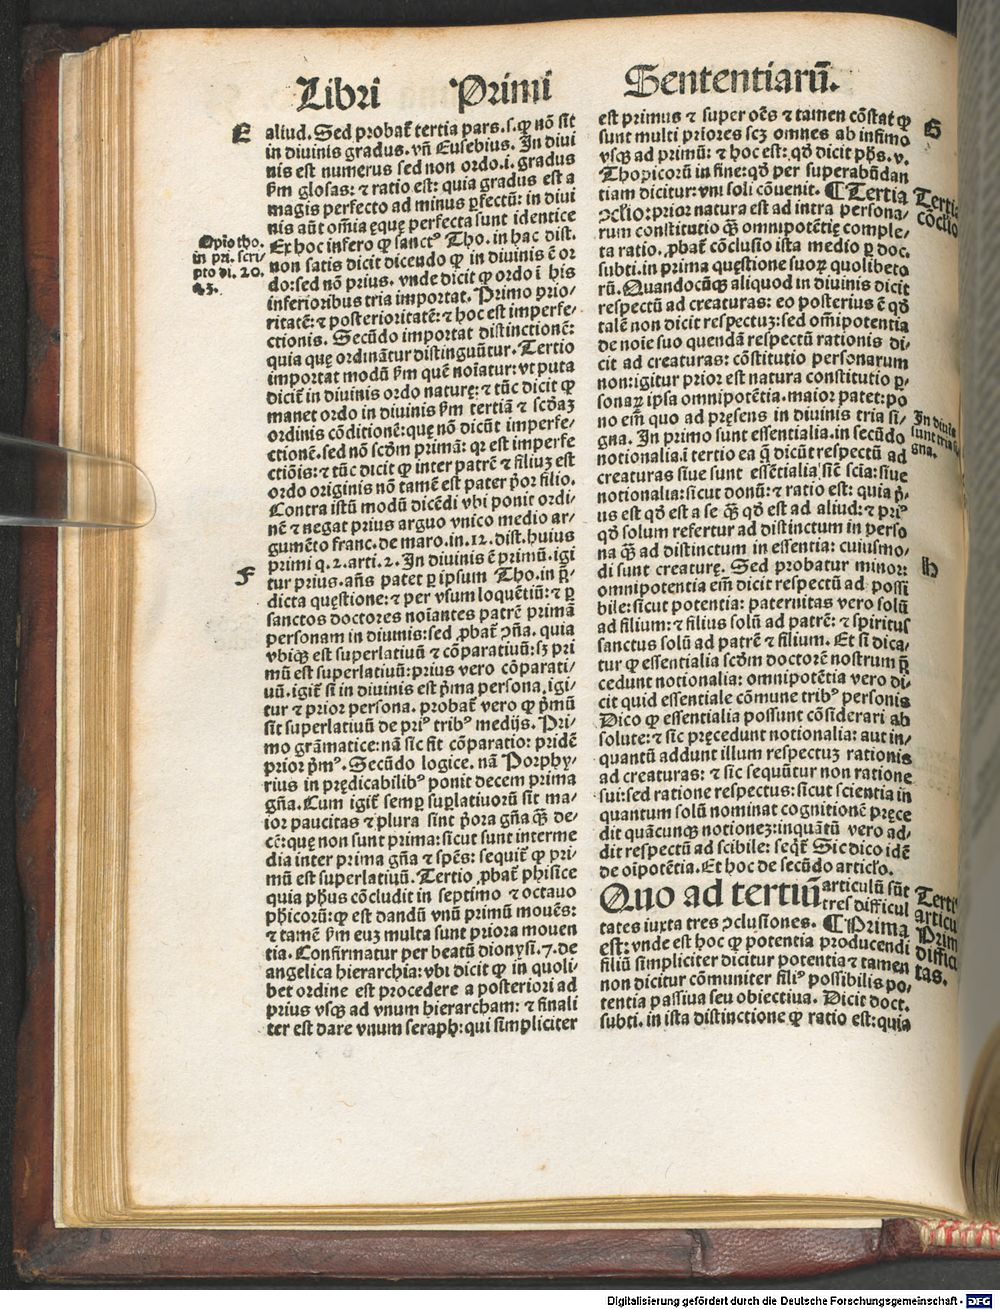 Libri Primi Sententiarū.
E
aliud. Sed probat̄ tertia pars.s.ꝙ nō sit
in diuinis gradus. vn̄ Eusebius. In diui
nis est numerus sed non ordo.i. gradus
ẜm glosas: ⁊ ratio est: quia gradus est a
magis perfecto ad minus ꝑfectū: in diui
nis aūt om̄ia ęque perfecta sunt identice
Ex hoc infero ꝙ sanctꝰ Tho. in hac dist.
non satis dicit dicendo ꝙ in diuinis ē or
do: sed nō prius. vnde dicit ꝙ ordo ī his
inferioribus tria importat. Primo prio⸗
ritatē: ⁊ posterioritatē: ⁊ hoc est imperfe⸗
ctionis. Secūdo importat distinctionē:
quia quę ordinātur distinguūtur. Tertio
importat modū ẜm quē noīatur: vt puta
dicit̄ in diuinis ordo naturę: ⁊ tūc dicit ꝙ
manet ordo in diuinis ẜm tertiā ⁊ scd̄aꝫ
ordinis cōditionē: quę nō dicūt imperfe⸗
ctionē. sed nō scd̄m primā: qr est imperfe
ctiōis: ⁊ tūc dicit ꝙ inter patrē ⁊ filiuꝫ est
ordo originis nō tamē est pater p̄or filio.
Contra istū modū dicēdi vbi ponit ordi⸗
nē ⁊ negat prius arguo vnico medio ar⸗
gumēto franc. de maro. in .12. dist. huius
primi q. 2. arti. 2. In diuinis ē primū. igi
tur prius. an̄s patet ꝑ ipsum Tho. in p̄⸗
dicta quęstione: ⁊ per vsum loquētiū: ⁊ ꝑ
sanctos doctores noīantes patrē primā
personam in diuinis: sed ꝓbat̄ ↄn̄a. quia
vbiqꝫ est superlatiuū ⁊ cōparatiuū: sꝫ pri
mū est superlatiuū: prius vero cōparati⸗
uū. igit̄ si in diuinis est p̄ma persona, igi⸗
tur ⁊ prior persona. probat̄ vero ꝙ p̄mū
sit superlatiuū de priꝰ tribꝰ medijs. Pri⸗
mo grāmatice: nā sic fit cōparatio: pridē
prior p̄mꝰ. Secūdo logice. nā Porphy⸗
rius in prędicabilibꝰ ponit decem prima
gn̄a. Cum igit̄ semꝑ suꝑlatiuorū sit ma⸗
ior paucitas ⁊ plura sint p̄ora gn̄a qꝫ̄ de⸗
cē: quę non sunt prima: sicut sunt interme
dia inter prima gn̄a ⁊ spēs: sequit̄ ꝙ pri⸗
mū est superlatiuū. Tertio ꝓbat̄ phisice
quia phūs cōcludit in septimo ⁊ octauo
phicorū: ꝙ est dandū vnū primū mouēs:
⁊ tamē ẜm euꝫ multa sunt priora mouen
tia. Confirmatur per beatū dionysi. 7. de
angelica hierarchia: vbi dicit ꝙ in quoli⸗
bet ordine est procedere a posteriori ad
prius vsqꝫ ad vnum hierarcham: ⁊ finali
ter est dare vnum seraph: qui simpliciter
Opīo tho.
in pri. scri⸗
pto di. 20.
q.3.
F
est primus ⁊ super oēs ⁊ tamen cōstat ꝙ
sunt multi priores scꝫ omnes ab infimo
vsqꝫ ad primū: ⁊ hoc est: qd̄ dicit ph̄s. v.
Thopicorū in fine: qd̄ per superabūdan
tiam dicitur: vni soli cōuenit. ¶ Tertia
ↄclio: prior natura est ad intra persona⸗
rum constitutio qꝫ̄ omnipotētię comple⸗
ta ratio. ꝓbat̄ cōclusio ista medio ꝑ doc.
subti. in prima quęstione suoꝝ quolibeto
rū. Quandocūqꝫ aliquod in diuinis dicit
respectū ad creaturas: eo posterius ē qd̄
talē non dicit respectuꝫ: sed om̄ipotentia
de noīe suo quendā respectū rationis di⸗
cit ad creaturas: cōstitutio personarum
non: igitur prior est natura constitutio ꝑ⸗
sonaꝝ ipsa omnipotētia. maior patet: po
no em̄ quo ad pręsens in diuinis tria si⸗
gna. In primo sunt essentialia. in secūdo
notionalia. ī tertio ea q̄ dicūt respectū ad
creaturas siue sunt essētialia siē scīa: siue
notionalia: sicut donū: ⁊ ratio est: quia p̄⸗
us est qd̄ est a se qꝫ̄ qd̄ est ad aliud: ⁊ priꝰ
qd̄ solum refertur ad distinctum in perso
na qꝫ̄ ad distinctum in essentia: cuiusmo⸗
di sunt creaturę. Sed probatur minor:
omnipotentia em̄ dicit respectū ad possi
bile: sicut potentia: paternitas vero solū
ad filium: ⁊ filius solū ad patrē: ⁊ spiritus
sanctus solū ad patrē ⁊ filium. Et si dica⸗
tur ꝙ essentialia scd̄m doctorē nostrum p̄
cedunt notionalia: omnipotētia vero di⸗
cit quid essentiale cōmune tribꝰ personis
Dico ꝙ essentialia possunt cōsiderari ab
solute: ⁊ sic pręcedunt notionalia: aut in⸗
quantū addunt illum respectuꝫ rationis
ad creaturas: ⁊ sic sequūtur non ratione
sui: sed ratione respectus: sicut scientia in
quantum solū nominat cognitionē pręce
dit quācunqꝫ notioneꝫ: inquātū vero ad⸗
dit respectū ad scibile: seqt̄. Sic dico idē
de oīpotētia. Et hoc de secūdo articło.
Quo ad tertiū articulū sūt
tres difficul
tates iuxta tres ↄclusiones. ¶ Prima
est: vnde est hoc ꝙ potentia producendi
filiū simpliciter dicitur potentia ⁊ tamen
non dicitur cōmuniter filiꝰ possibilis po⸗
tentia passiua seu obiectiua. Dicit doct.
subti. in ista distinctione ꝙ ratio est: quia
G
Tertia
cōclio
In diuis
sunt tria si
gna.
H
Terti
articu
Prim
diffic
tas.
Digitalisierung gefördert durch die Deutsche Forschungsgemeinschaft - DFG